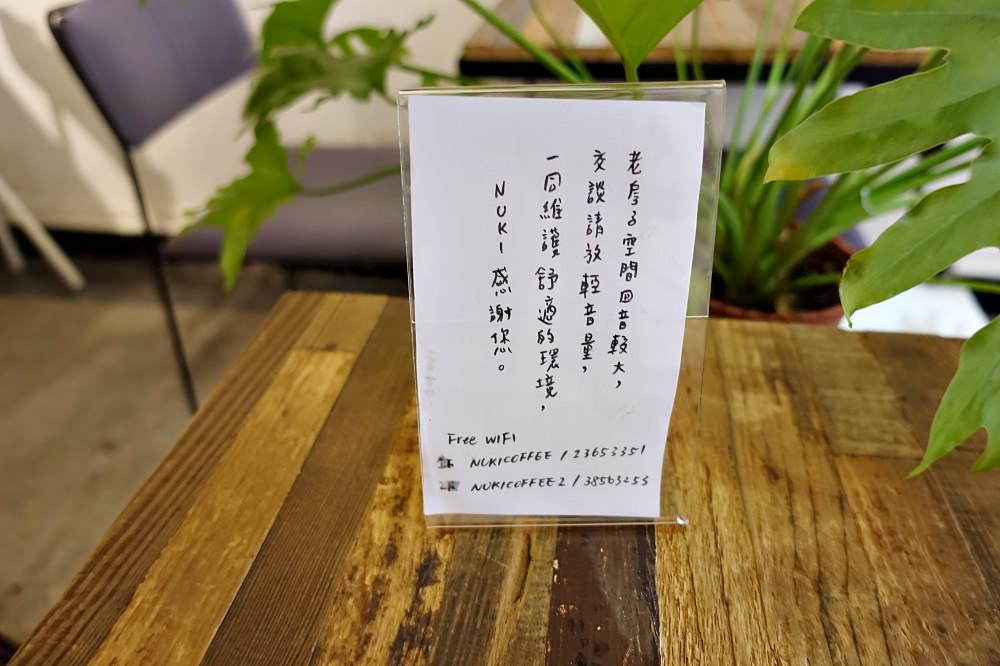 老房子空間回音較大,
交談請放輕音量,
一同維護舒適的環境,
NUKI 感謝您。
Free WIFI
NUKICOFFEE / 23653351
NUKICOFFEE2 / 38563253